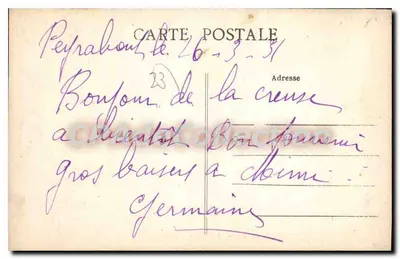 CARTE POSTALE
Peyrabout le 26-3-31
23
Adresse
Bonjour de la creuse
a bientot Bon souvenir
gros baisers a Mimi
Germaine